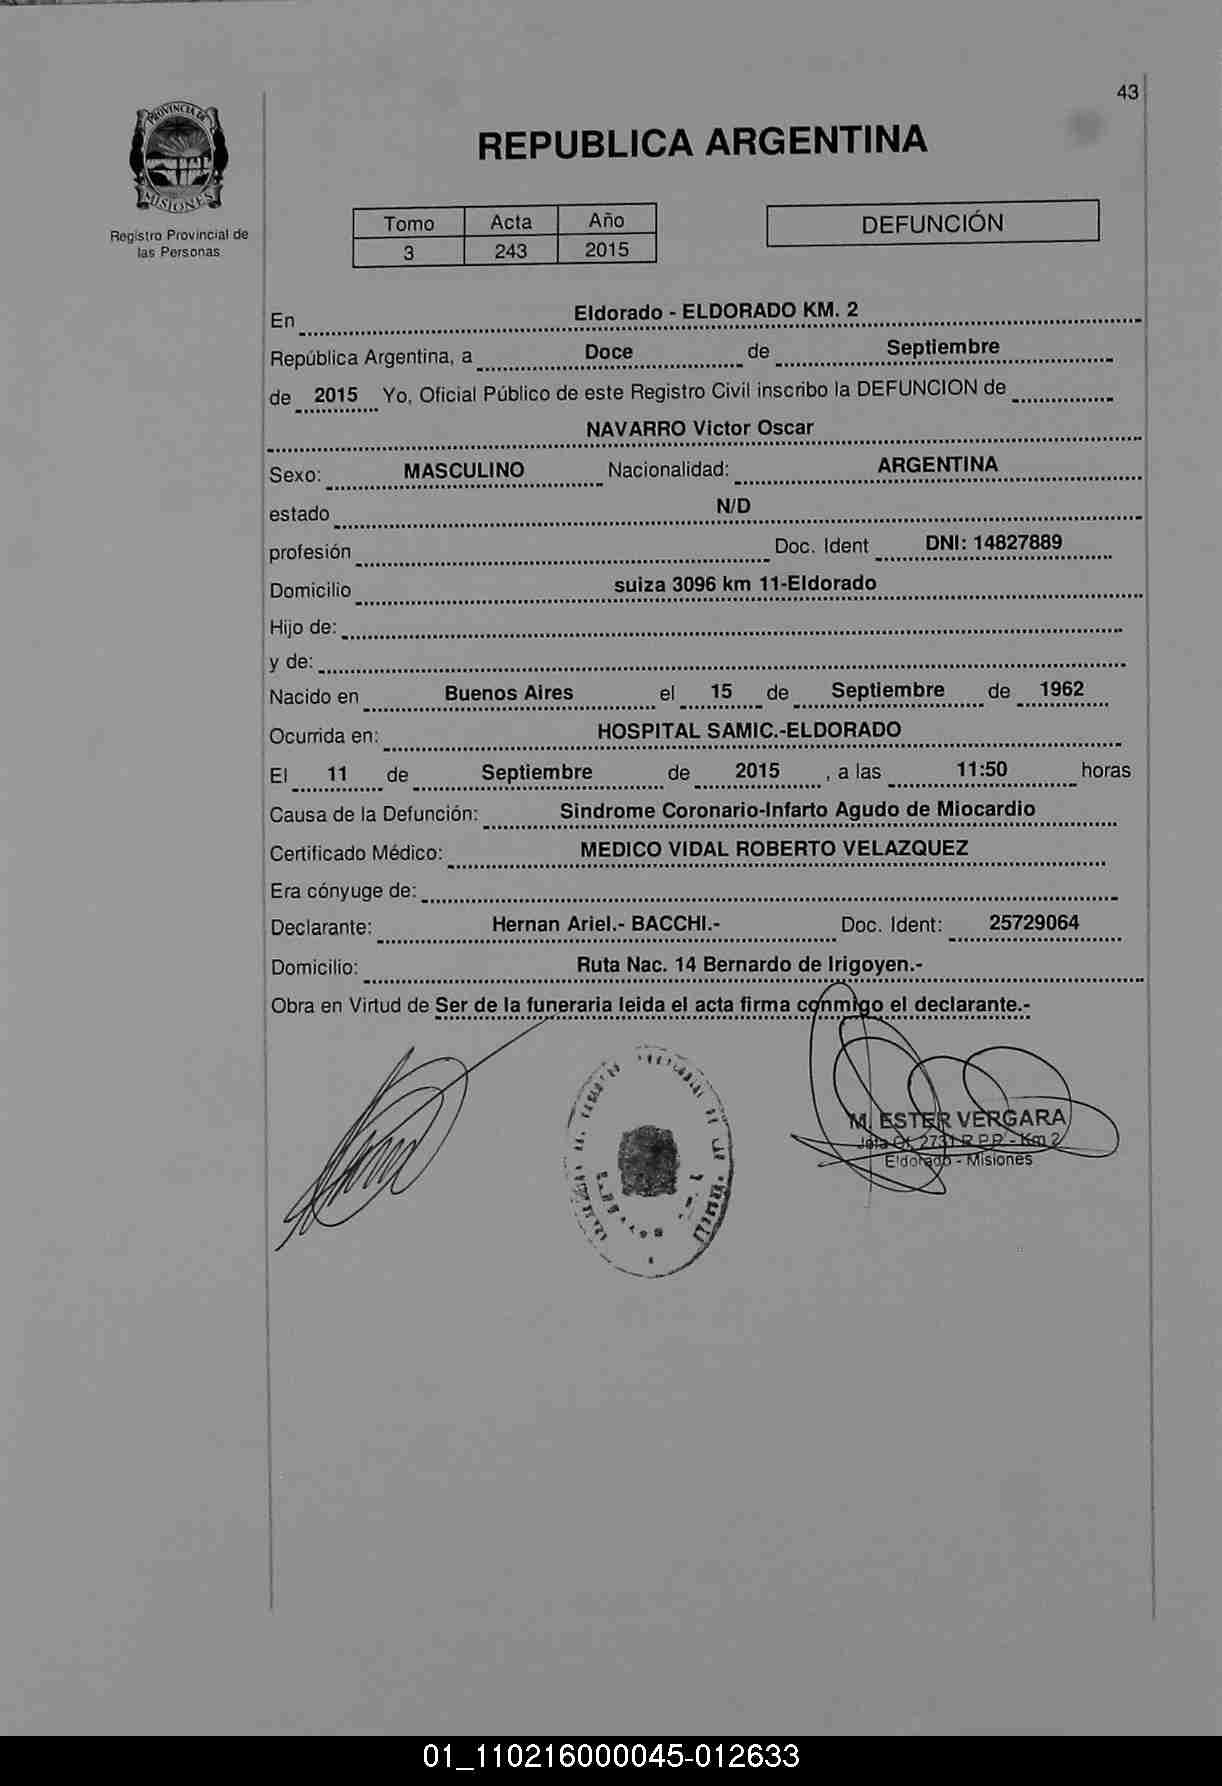 43
PROVINCIA DE
MISIONES
Registro Provincial de
las Personas
REPUBLICA ARGENTINA
Tomo Acta Año
3 243 2015
DEFUNCIÓN
En Eldorado - ELDORADO KM. 2
República Argentina, a Doce de Septiembre
de 2015 Yo, Oficial Público de este Registro Civil inscribo la DEFUNCION de
NAVARRO Victor Oscar
Sexo: MASCULINO Nacionalidad: ARGENTINA
estado N/D
profesión Doc. Ident DNI: 14827889
Domicilio suiza 3096 km 11-Eldorado
Hijo de:
y de:
Nacido en Buenos Aires el 15 de Septiembre de 1962
Ocurrida en: HOSPITAL SAMIC.-ELDORADO
El 11 de Septiembre de 2015 , a las 11:50 horas
Causa de la Defunción: Sindrome Coronario-Infarto Agudo de Miocardio
Certificado Médico: MEDICO VIDAL ROBERTO VELAZQUEZ
Era cónyuge de:
Declarante: Hernan Ariel.- BACCHI.- Doc. Ident: 25729064
Domicilio: Ruta Nac. 14 Bernardo de Irigoyen.-
Obra en Virtud de Ser de la funeraria leida el acta firma conmigo el declarante.-
M. ESTER VERGARA
Jefa Of. 2731 R.P.P. - Km 2
Eldorado - Misiones
01_110216000045-012633